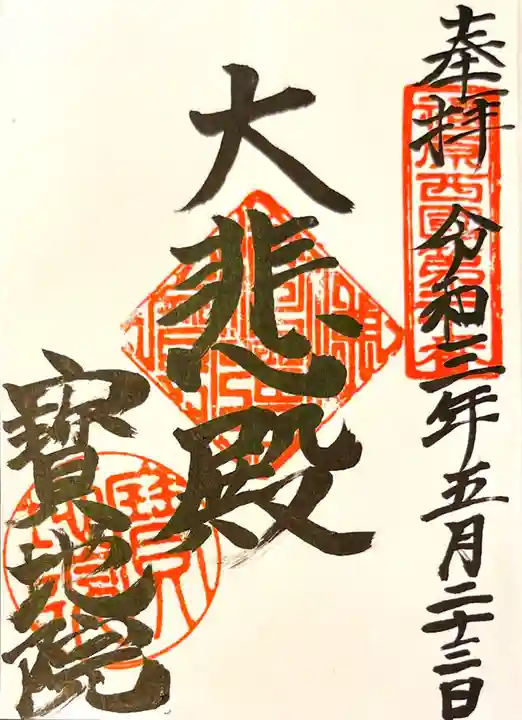 奉拝 令和三年五月二十三日
大悲殿
寳地院